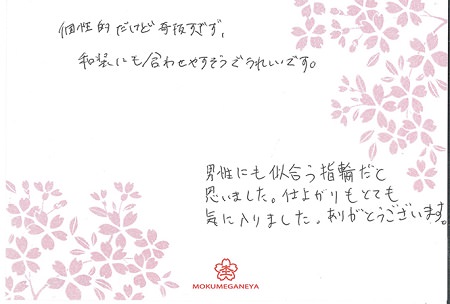 個性的だけど奇抜すぎず、
和装にも合わせやすそうでうれしいです。
男性にも似合う指輪だと
思いました。仕上がりもとても
気に入りました。ありがとうございます。
MOKUMEGANEYA